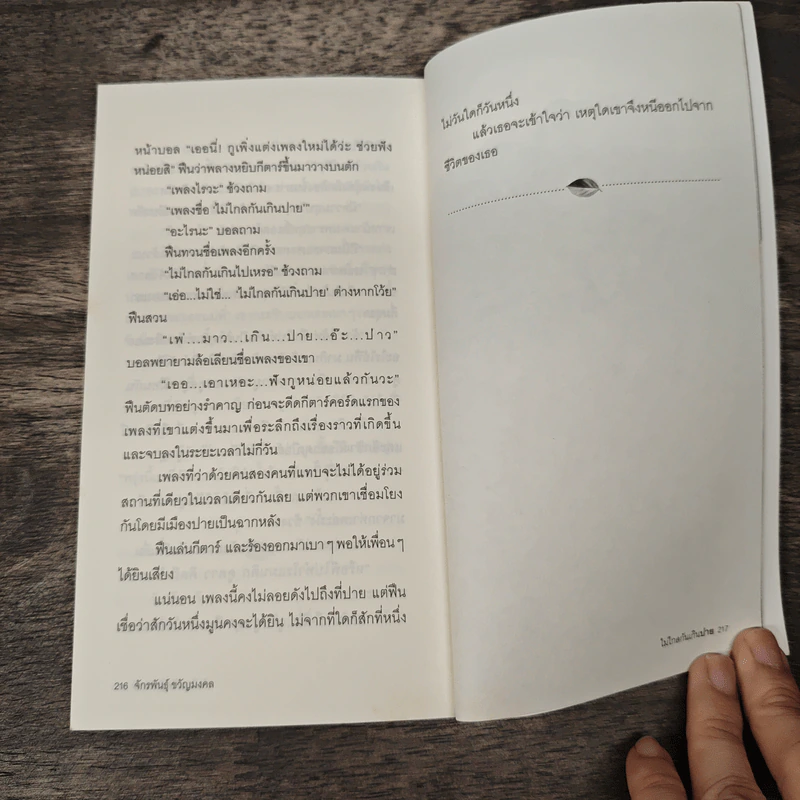 หน้าบอล "เออนี่! กูเพิ่งแต่งเพลงใหม่ได้ว่ะ ช่วยฟัง
หน่อยสิ" ฟืนว่าพลางหยิบกีตาร์ขึ้นมาวางบนตัก
"เพลงไรวะ" ช้วงถาม
"เพลงชื่อ 'ไม่ไกลกันเกินปาย'"
"อะไรนะ" บอลถาม
ฟืนทวนชื่อเพลงอีกครั้ง
"ไม่ไกลกันเกินไปเหรอ" ช้วงถาม
"เอ่อ...ไม่ใช่... 'ไม่ไกลกันเกินปาย' ต่างหากโว้ย"
ฟืนสวน
"เพ่...มาว...เกิน...ปาย...อ๊ะ...ปาว"
บอลพยายามล้อเลียนชื่อเพลงของเขา
"เออ...เอาเหอะ...ฟังกูหน่อยแล้วกันวะ"
ฟืนตัดบทอย่างรำคาญ ก่อนจะดีดกีตาร์คอร์ดแรกของ
เพลงที่เขาแต่งขึ้นมาเพื่อระลึกถึงเรื่องราวที่เกิดขึ้น
และจบลงในระยะเวลาไม่กี่วัน
เพลงที่ว่าด้วยคนสองคนที่แทบจะไม่ได้อยู่ร่วม
สถานที่เดียวในเวลาเดียวกันเลย แต่พวกเขาเชื่อมโยง
กันโดยมีเมืองปายเป็นฉากหลัง
ฟืนเล่นกีตาร์ และร้องออกมาเบาๆ พอให้เพื่อนๆ
ได้ยินเสียง
แน่นอน เพลงนี้คงไม่ลอยดังไปถึงที่ปาย แต่ฟืน
เชื่อว่าสักวันหนึ่งมูนคงจะได้ยิน ไม่จากที่ใดก็สักที่หนึ่ง
216 จักรพันธุ์ ขวัญมงคล
ไม่วันใดก็วันหนึ่ง
แล้วเธอจะเข้าใจว่า เหตุใดเขาจึงหนีออกไปจาก
ชีวิตของเธอ
ไม่ไกลกันเกินปาย 217